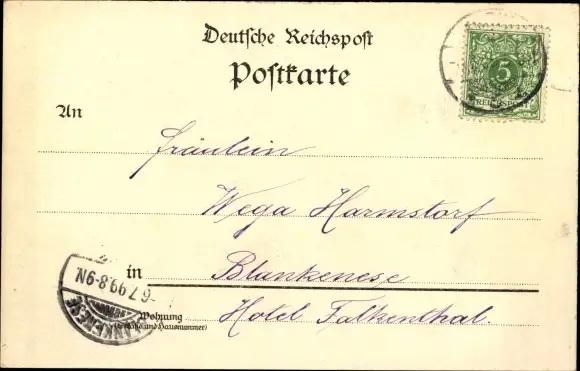 Deutsche Reichspost
Postkarte
5
REICHSPOST
An
Fräulein
Wega Harmstorf
in
Blankenese
Wohnung
(Straße und Hausnummer)
Hotel Falkenthal.
6.7.99.8-9N.
BLANKENESE